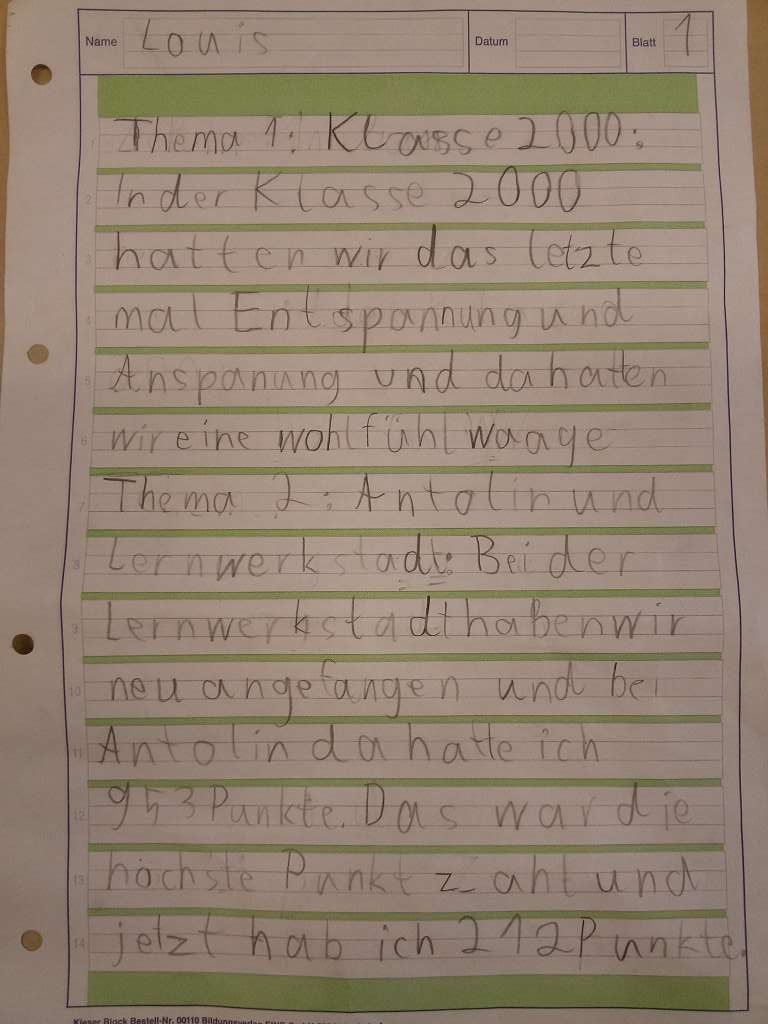 Name Louis Datum Blatt 1
1 Thema 1: Klasse 2000:
2 In der Klasse 2000
3 hatten wir das letzte
4 mal Entspannung und
5 Anspanung und da hatten
6 wir eine wohlfühl waage
7 Thema 2: Antolin und
8 Lernwerkstadt: Bei der
9 Lernwerkstadt haben wir
10 neu angefangen und bei
11 Antolin da hatte ich
12 953 Punkte. Das war die
13 höchste Punktzahl und
14 jetzt hab ich 212 Punkte.
Kieser Block Bestell-Nr. 00110